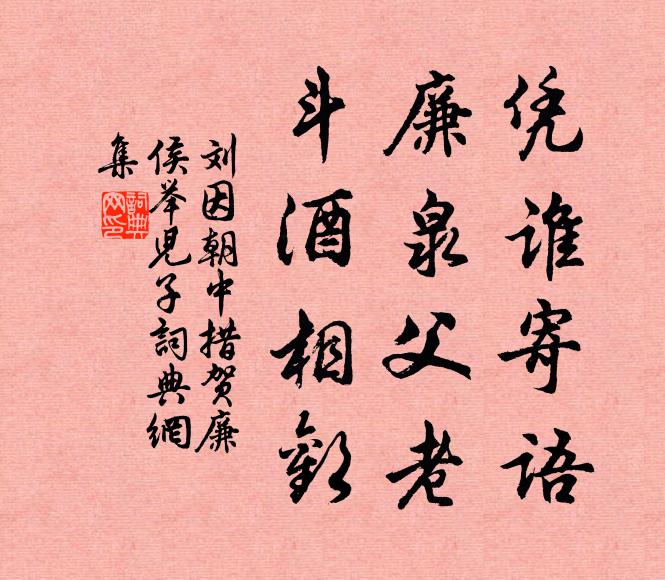 凭谁寄语
廉泉父老
斗酒相歡
刘因朝中措贺廉
侯举児子詞典網
集
詞典
网印